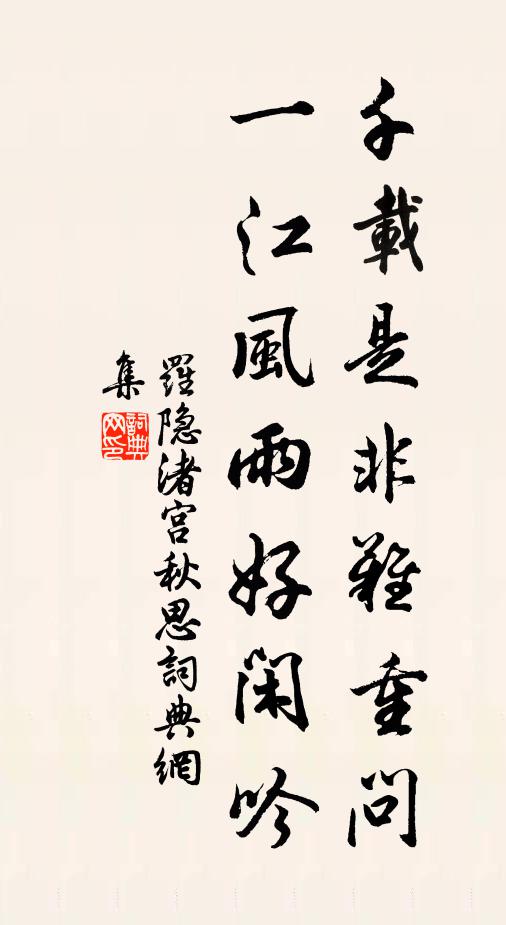 千載是非難重問
一江風雨好閑吟
羅隐渚宫秋思詞典網
集
詞典
网印